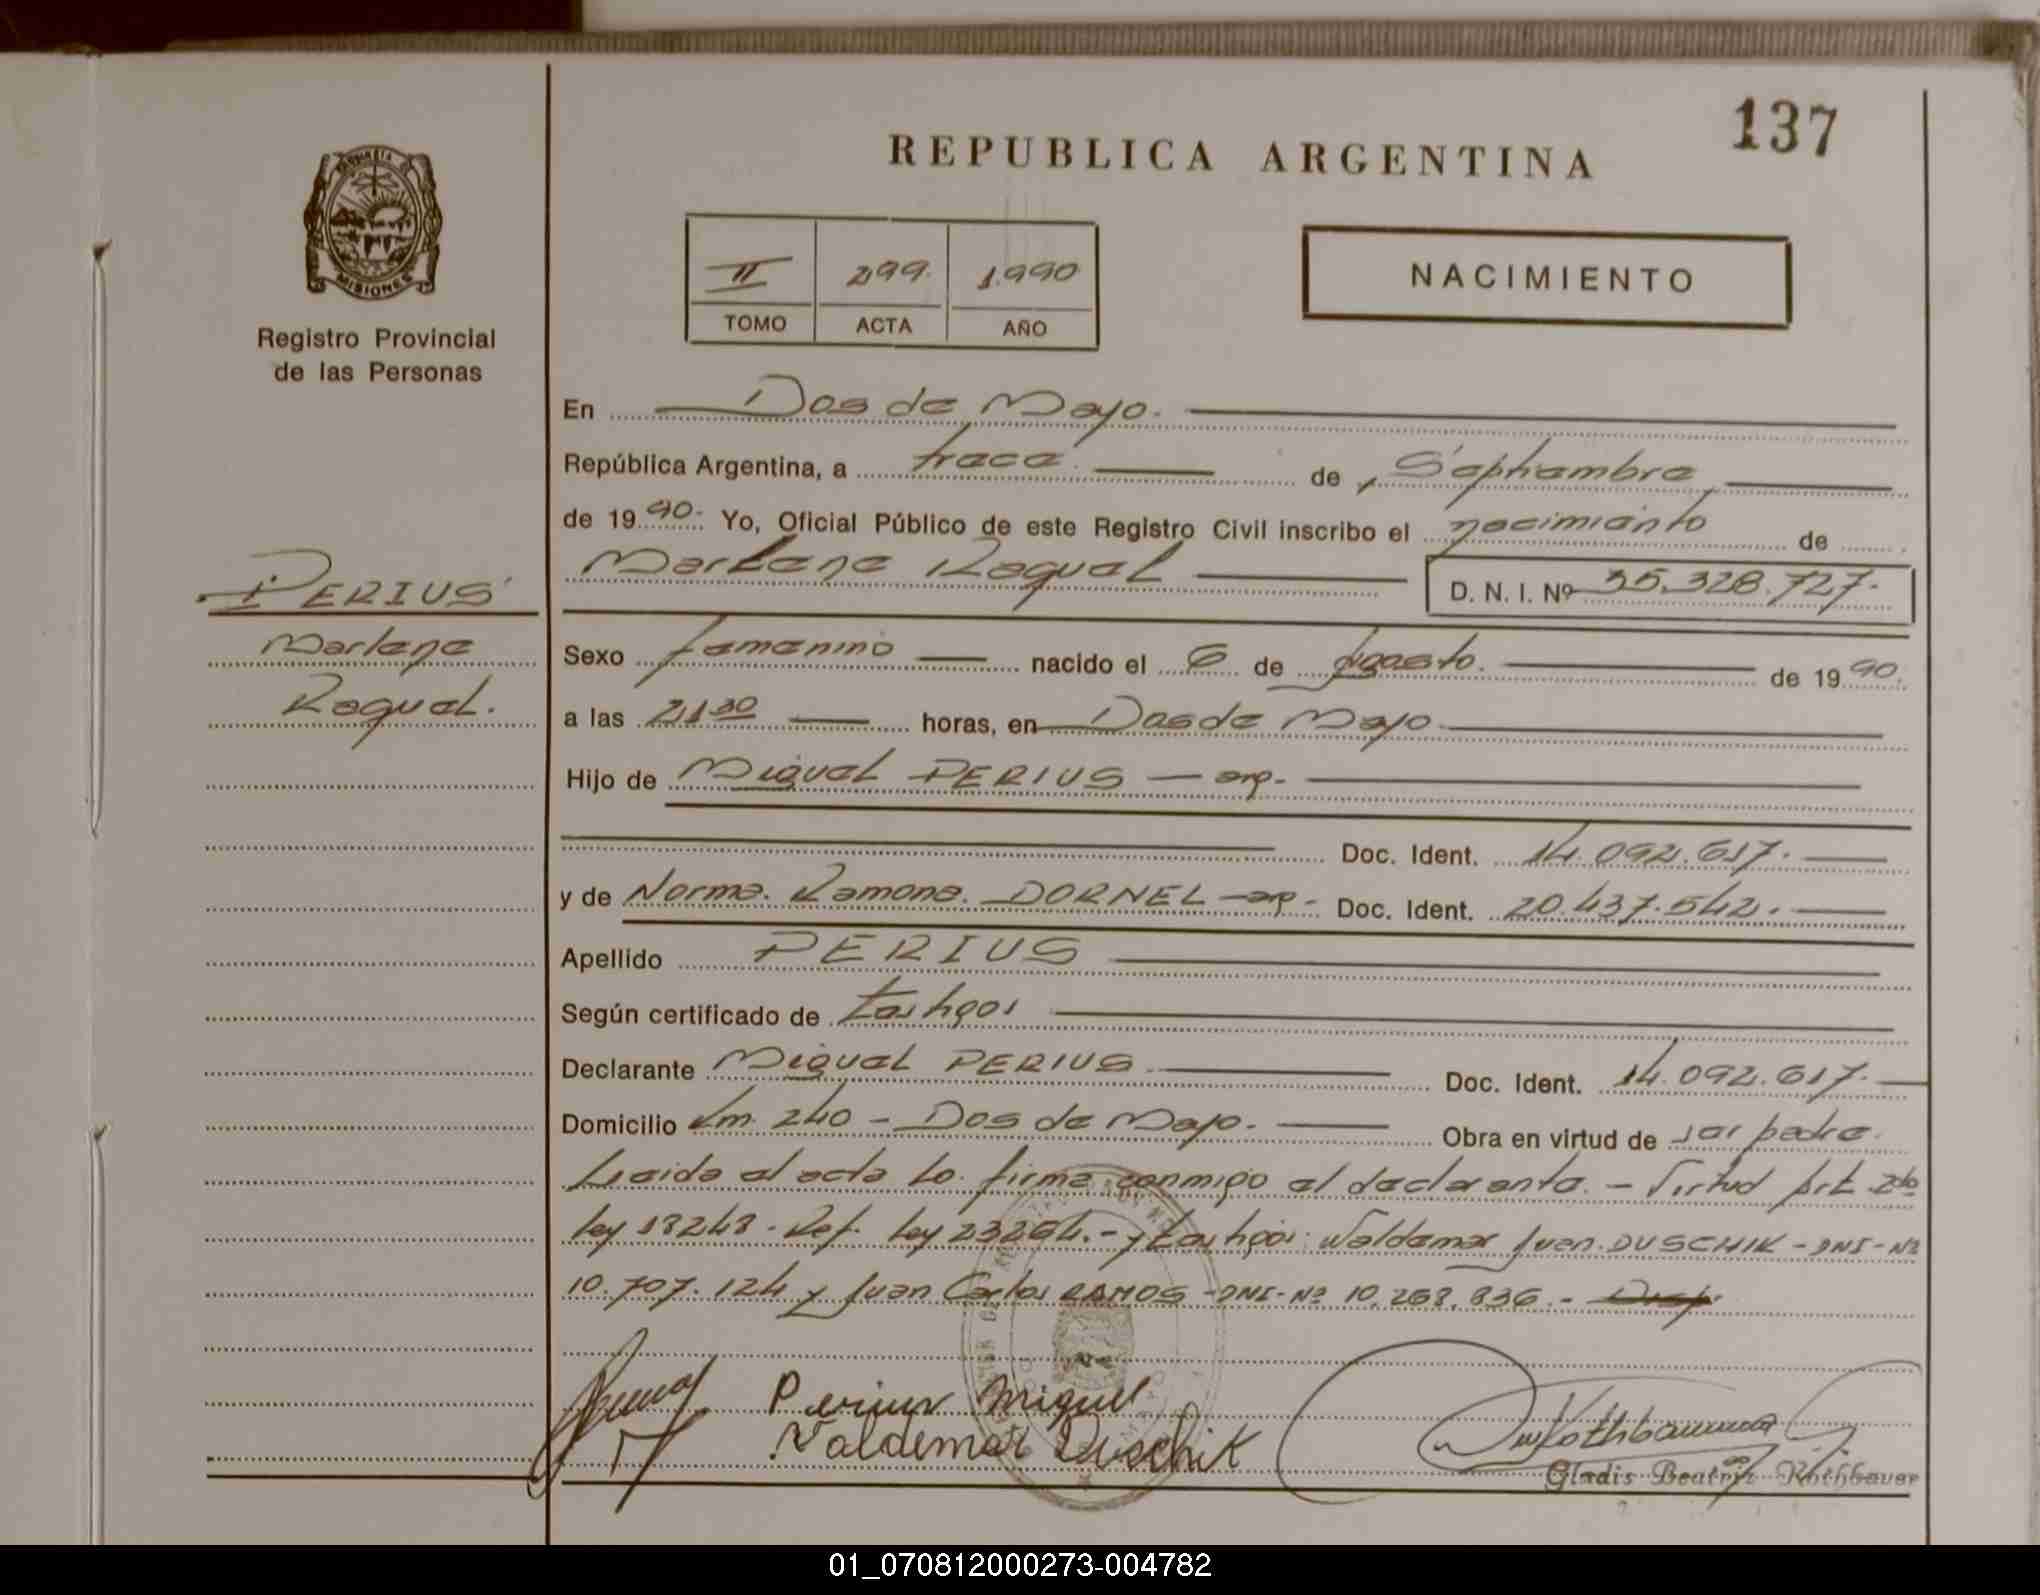 137
REPUBLICA ARGENTINA
PROVINCIA DE
MISIONES
Registro Provincial
de las Personas
II 299. 1.990
TOMO ACTA AÑO
NACIMIENTO
En Dos de Mayo.
República Argentina, a trece. de Septiembre
de 1990.- Yo, Oficial Público de este Registro Civil inscribo el nacimiento de
Marlene Raquel D. N. I. Nº 35.328.727.-
PERIUS
Marlene
Raquel.
Sexo femenino nacido el 6 de Agosto. de 1990.
a las 21 30 horas, en Dos de Mayo
Hijo de Miguel PERIUS — arg.-
Doc. Ident. 14.092.617.-
y de Norma. Ramona. DORNEL -arg.- Doc. Ident. 20.437.542.-
Apellido PERIUS
Según certificado de testigos
Declarante Miguel PERIUS. Doc. Ident. 14.092.617.-
Domicilio Km. 240 - Dos de Mayo.- Obra en virtud de ser padre.
Leida el acta la firma conmigo el declarante. - Virtud Art. 2do
ley 18248. Ref. ley 23264.- y testigos: Waldemar Juan DUSCHIK - DNI - Nº
10.707.124 y Juan Carlos RAMOS - DNI - Nº 10.268.836.-
Perius Miguel
Valdemar Duschik
Rothbauer
Gladis Beatriz Rothbauer
01_070812000273-004782